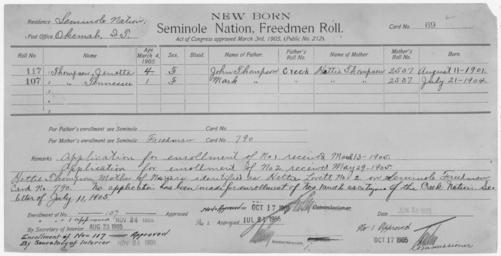 NEW BORN
Residence Seminole Nation.
Seminole Nation, Freedmen Roll.
Card No. 69
Post Office Okemah, I.T.
Act of Congress approved March 3rd, 1905, (Public No. 212).
Roll No. Name Age March 4, 1905 Sex. Blood. Name of Father. Father's Roll No. Name of Mother Mother's Roll No. Born.
117 Thompson, Jenetta 4 F John Thompson Creek Hettie Thompson 2537 August 11-1901.
107 " Tennessee 1 F Mack " " 2537 July 21-1904.
For Father's enrollment see Seminole Card No.
For Mother's enrollment see Seminole Freedman Card No. 790
Remarks Application for enrollment of No. 1 received March 13-1905.
Application for enrollment of No. 2 received May 29-1905.
Hettie Thompson Mother of Nos. identified as Hettie No. 2 on Seminole Freedman
Card No. 790. No application has been made for enrollment of No. 1 as a citizen of the Creek Nation. See
letter of July 11, 1905.
Enrollment of No. 107 Approved
By Secretary of Interior AUG 23 1905
Enrollment of Nos 117 Approved
By Secretary of Interior NOV 24 1905
Not Approved OCT 17 1905
Commissioner.
Approved JUL 24 1905
Commissioner.
No. 1 Approved
OCT 17 1905
Commissioner